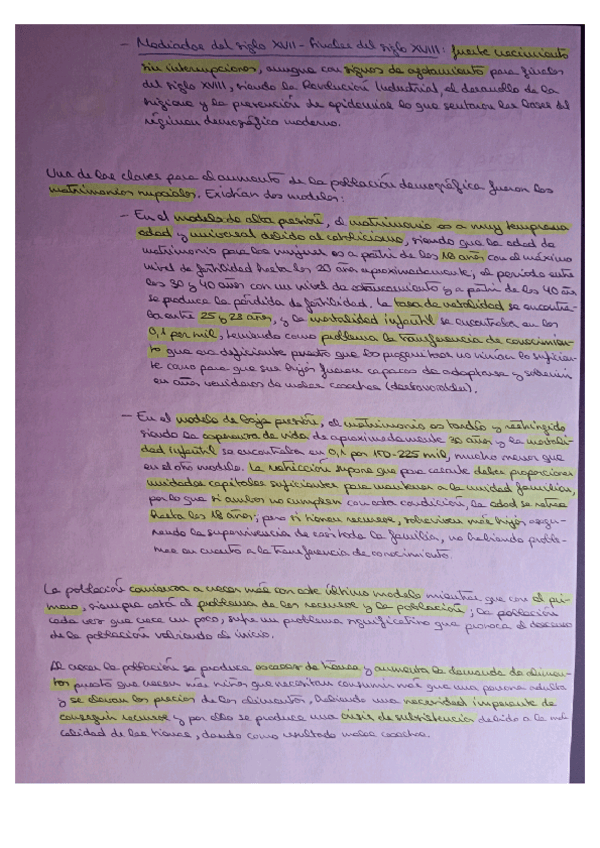 - Mediados del siglo XVII - finales del siglo XVIII: fuerte crecimiento
sin interrupciones, aunque con signos de agotamiento para finales
del siglo XVIII, siendo la Revolución Industrial, el desarrollo de la
higiene y la prevención de epidemias lo que sentaron las bases del
régimen demográfico moderno.
Una de las claves para el aumento de la población demográfica fueron los
matrimonios nupciales. Existían dos modelos:
- En el modelo de alta presión, el matrimonio es a muy temprana
edad y universal debido al catolicismo, siendo que la edad de
matrimonio para las mujeres es a partir de los 18 años con el máximo
nivel de fertilidad hasta los 20 años aproximadamente; el período entre
los 30 y 40 años con un nivel de estancamiento y a partir de los 40 años
se produce la pérdida de fertilidad. La tasa de natalidad se encontra-
ba entre 25 y 28 años, y la mortalidad infantil se encontraba en los
0,1 por mil, teniendo como problema la transferencia de conocimien-
to que era deficiente puesto que los progenitores no vivían lo suficien-
te como para que sus hijos fueran capaces de adaptarse y sobrevivir
en años venideros de malas cosechas (desfavorables).
- En el modelo de baja presión, el matrimonio es tardío y restringido
siendo la esperanza de vida de aproximadamente 30 años y la mortali-
dad infantil se encontraba en 0,1 por 150-225 mil, mucho menor que
en el otro modelo. La restricción supone que para casarte debes proporcionar
unidades capitales suficientes para mantener a la unidad familiar,
por lo que si ambos no cumplen con esta condición, la edad se retrasa
hasta los 18 años; pero si tienen recursos, sobreviven más hijos asegu-
rando la supervivencia de casi toda la familia, no habiendo proble-
mas en cuanto a la transferencia de conocimiento.
La población comienza a crecer más con este último modelo mientras que con el pri-
mero, siempre está el problema de los recursos y la población; la población
cada vez que crece un poco, sufre un problema significativo que provoca el descenso
de la población volviendo al inicio.
Al crecer la población se produce escasez de tierras y aumenta la demanda de alimen-
tos puesto que crecen más niños que necesitan consumir más que una persona adulta
y se elevan los precios de los alimentos, habiendo una necesidad imperante de
conseguir recursos y por ello se produce una crisis de subsistencia debido a la mala
calidad de las tierras, dando como resultado malas cosechas.